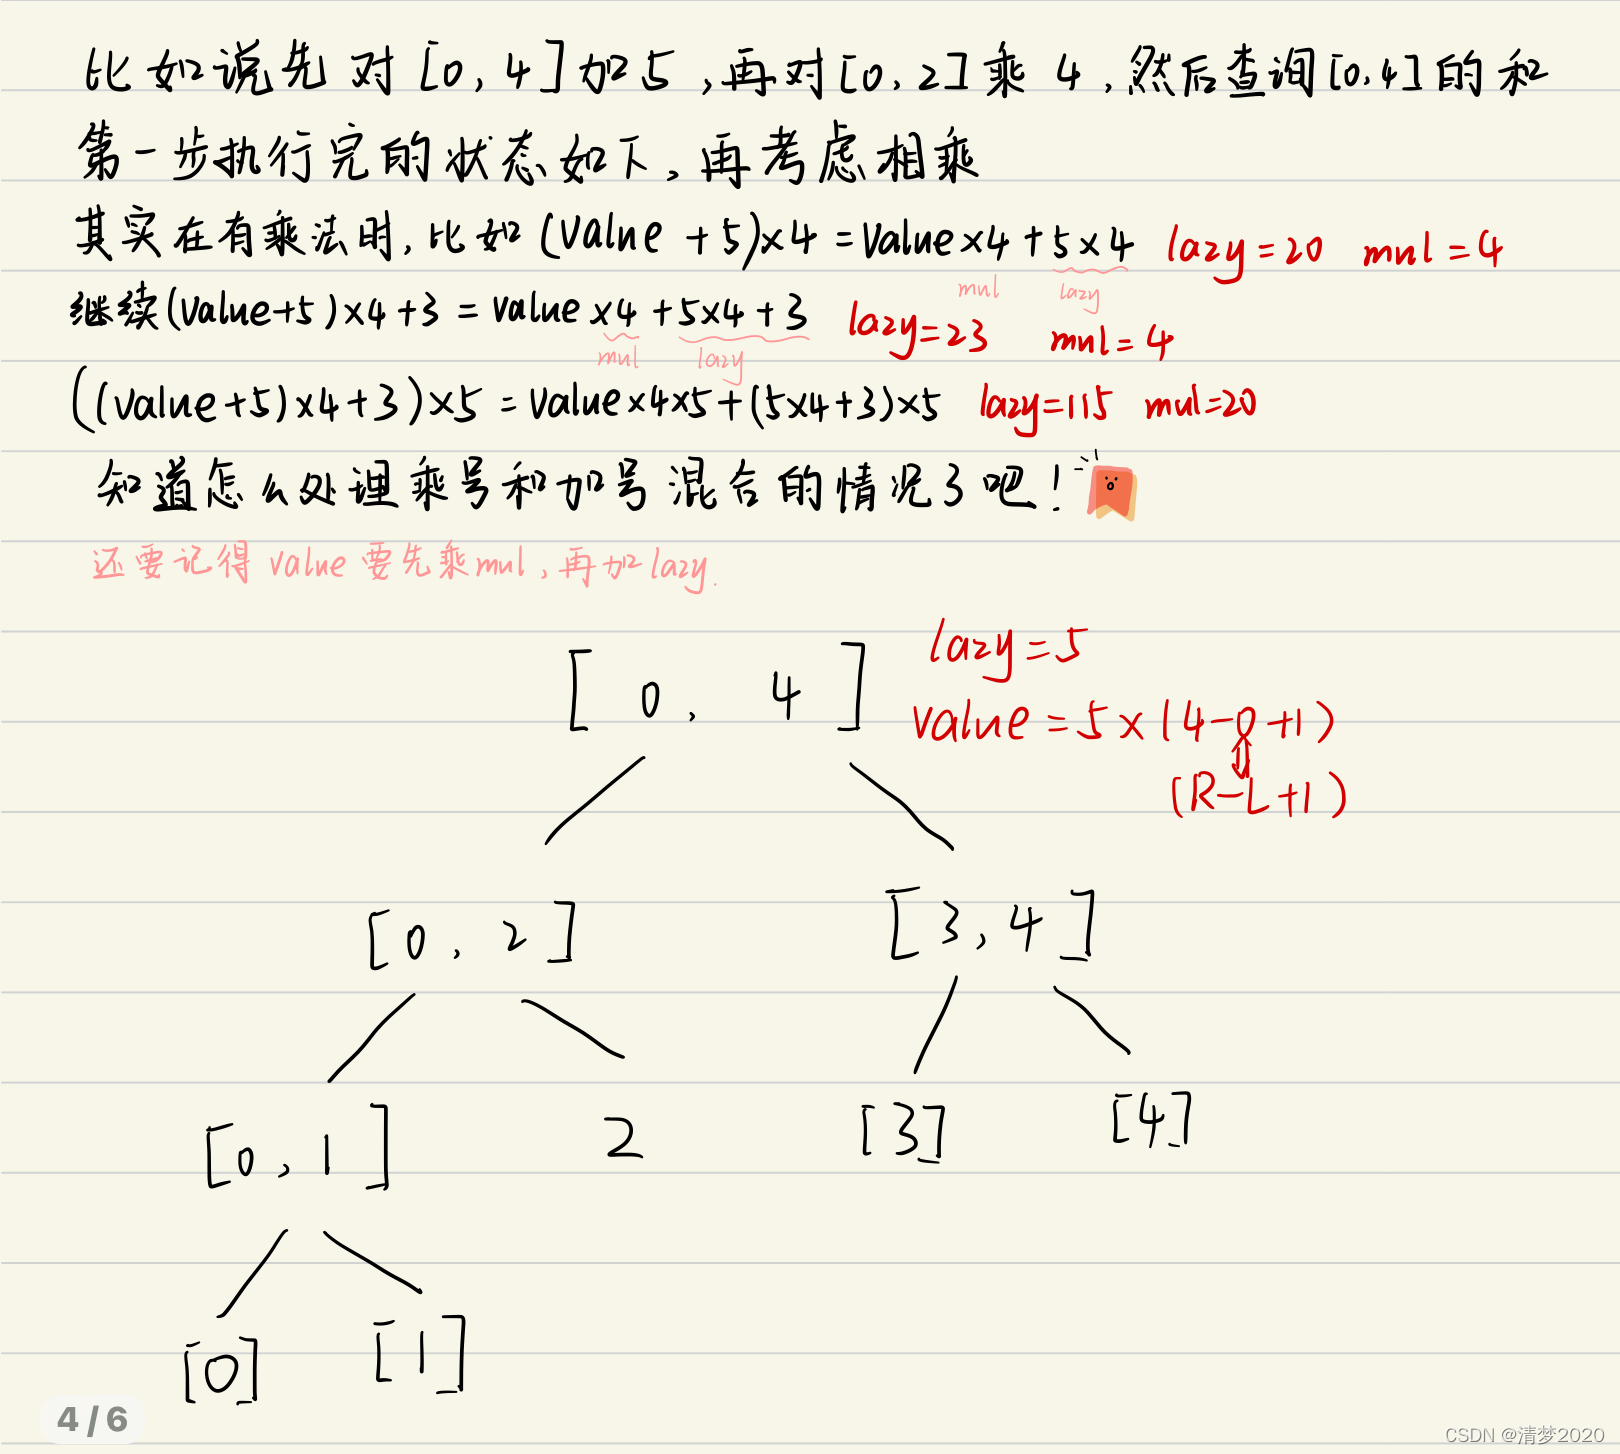 比如说先对[0,4]加5,再对[0,2]乘4,然后查询[0,4]的和
第一步执行完的状态如下,再考虑相乘
其实在有乘法时,比如(value+5)×4=value×4+5×4 lazy=20 mul=4
mul lazy
继续(value+5)×4+3=value×4+5×4+3 lazy=23 mul=4
mul lazy
((value+5)×4+3)×5=value×4×5+(5×4+3)×5 lazy=115 mul=20
知道怎么处理乘号和加号混合的情况了吧!
还要记得value要先乘mul,再加lazy.
[0,4] lazy=5
value=5×(4-0+1)
(R-L+1)
[0,2] [3,4]
[0,1] 2 [3] [4]
[0] [1]
4/6
CSDN @清梦2020